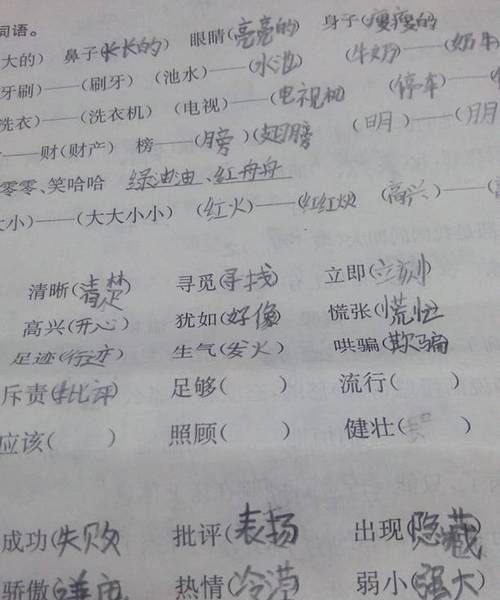 词语。
大的) 鼻子(长长的) 眼睛(亮亮的) 身子(瘦瘦的
牙刷)——(刷牙) (池水)——(水池) (牛奶)——(奶牛
洗衣)——(洗衣机) (电视)——(电视机 (停车)——(
——财(财产) 榜——(膀)(翅膀) (明)——(
零零、笑哈哈 绿油油、红舟舟
大小)——(大大小小) (红火)——(红红火 (高兴)——(
清晰(清楚) 寻觅(寻找) 立即(立刻)
高兴(开心) 犹如(好像) 慌张(慌忙
足迹(行迹) 生气(发火) 哄骗(欺骗
斥责(批评) 足够( ) 流行( )
应该( ) 照顾( ) 健壮( )
成功(失败 批评(表扬 出现(隐藏
骄傲( 热情(冷漠 弱小(强大)